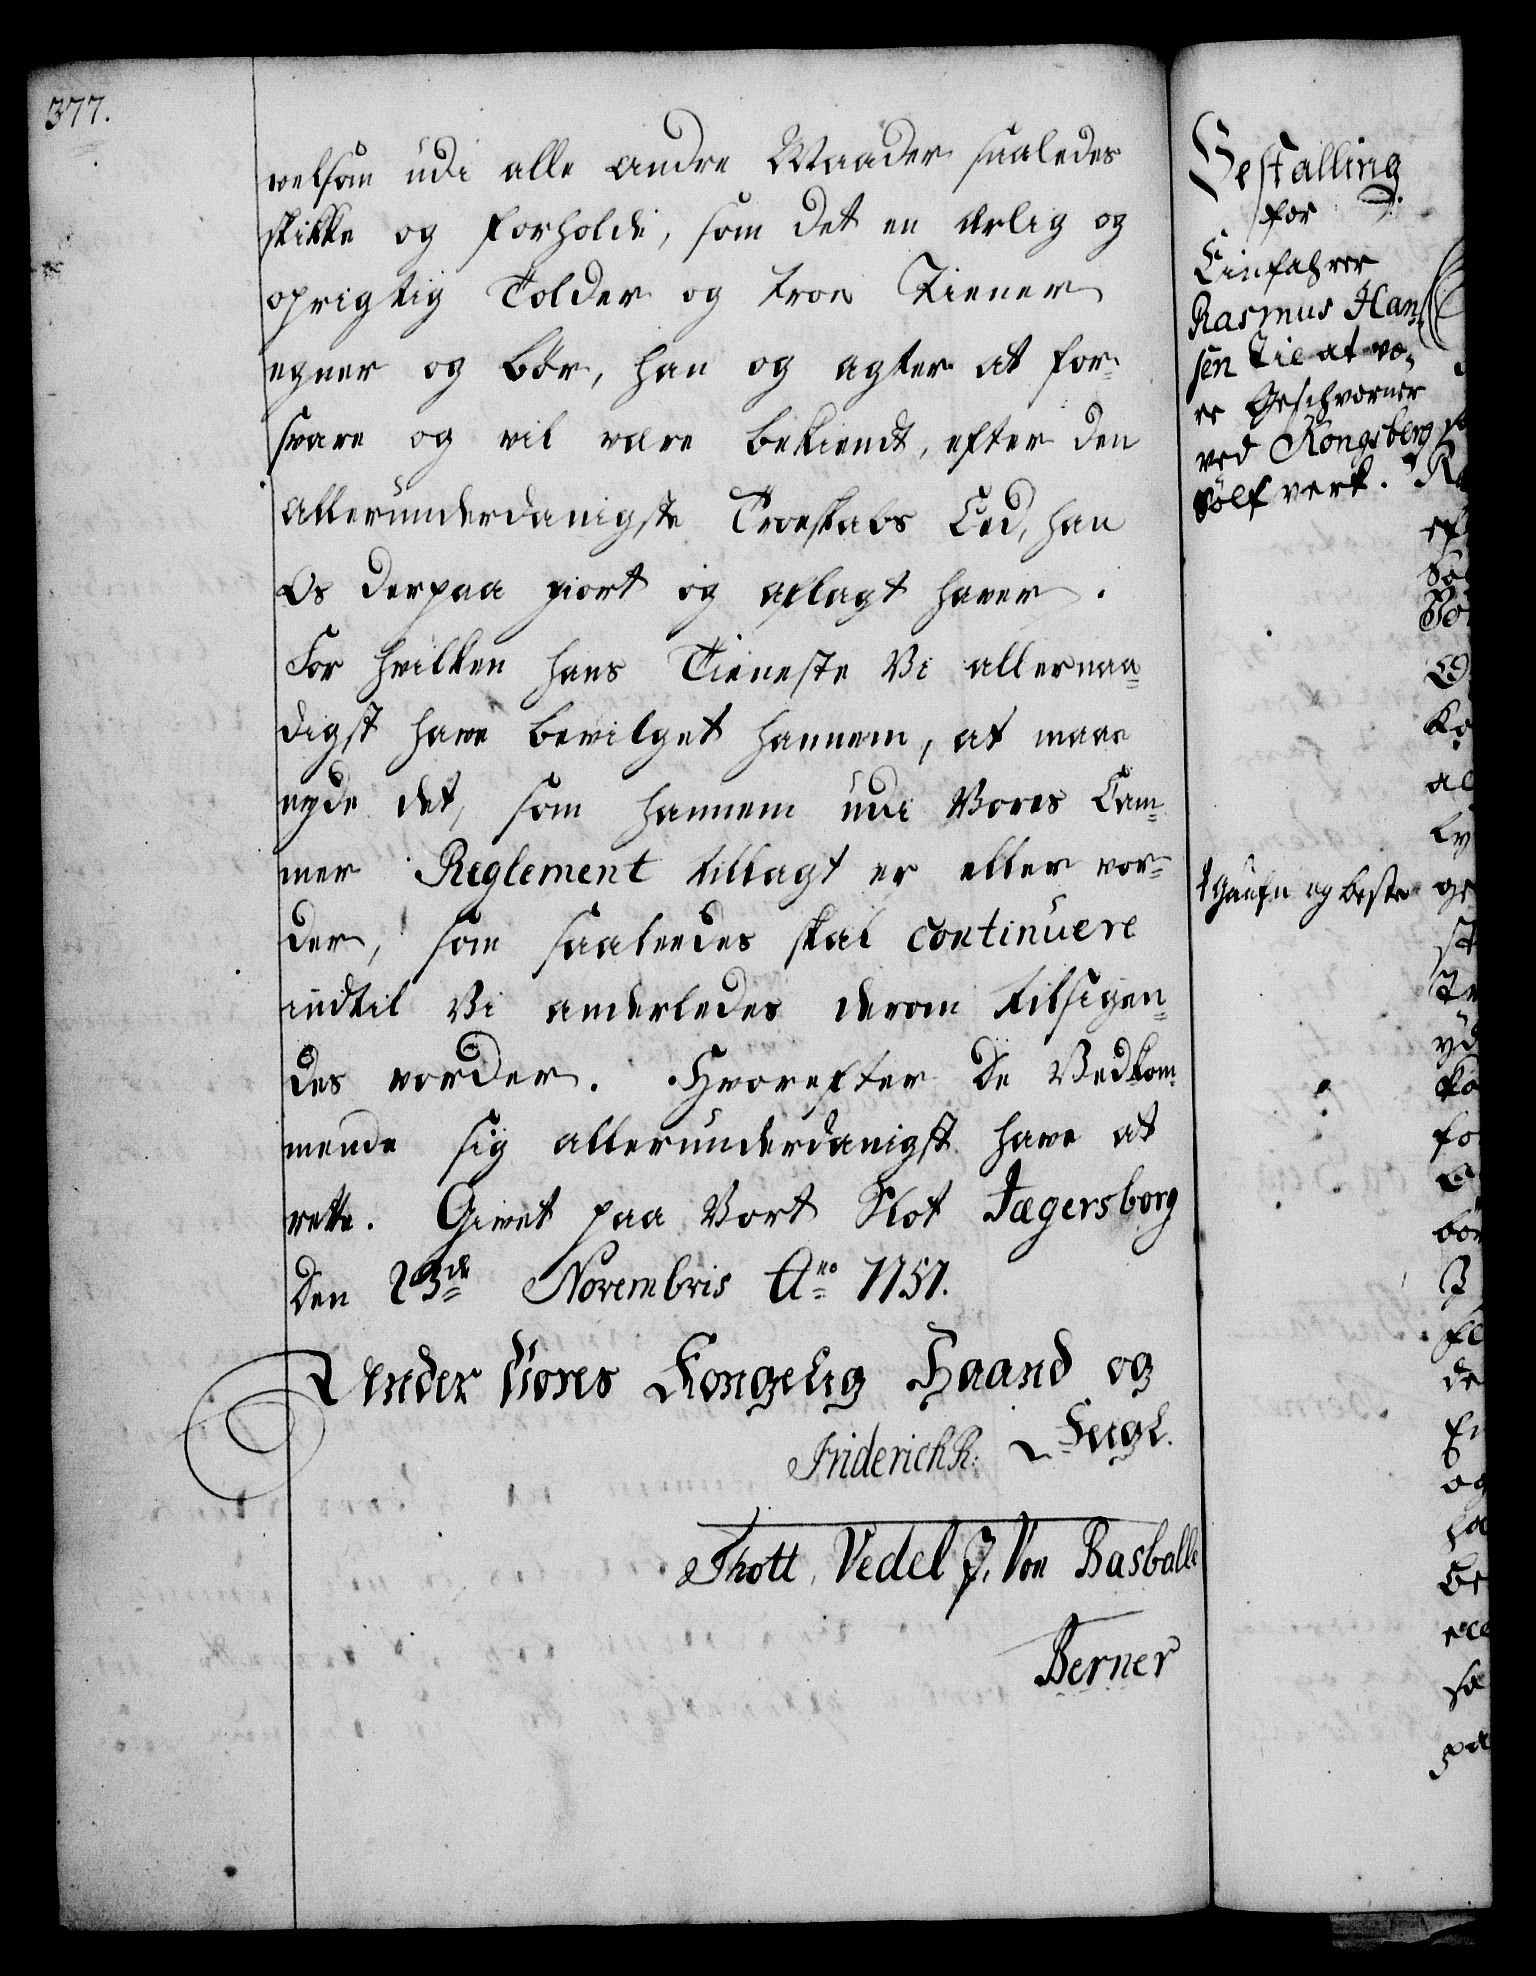 377.
velsom udi alle andre Maader saaledes
skikke og forholde, som det en ærlig og
oprigtig Tolder og troe Tiener
egner og bör, han og agter at for-
svare og vil være bekiendt, efter den
allerunderdanigste Troeskabs Eed, han
Os derpaa giort og aflagt haver.
For hvilken hans Tieneste Vi allernaa-
digst have bevilget hannem, at maae
nyde det, som hannem udi Vores Cam-
mer Reglement tillagt er eller vor-
der, som saaleedes skal continuere
indtil Vi anderledes derom tilsigen-
des vorder. Hvorefter De Vedkom-
mende sig allerunderdanigst have at
rette. Givet paa Vort Slot Jægersborg
den 23de Novembris Ao 1751.
Under Vores Kongelig Haand og
Friderich R. Seigl.
Thott, Vedel J. Von Basballe
Berner
Bestalling
for
Einfahrer
Rasmus Han-
sen til at væ-
re Geschworner
ved Kongsberg
Sölf verk.